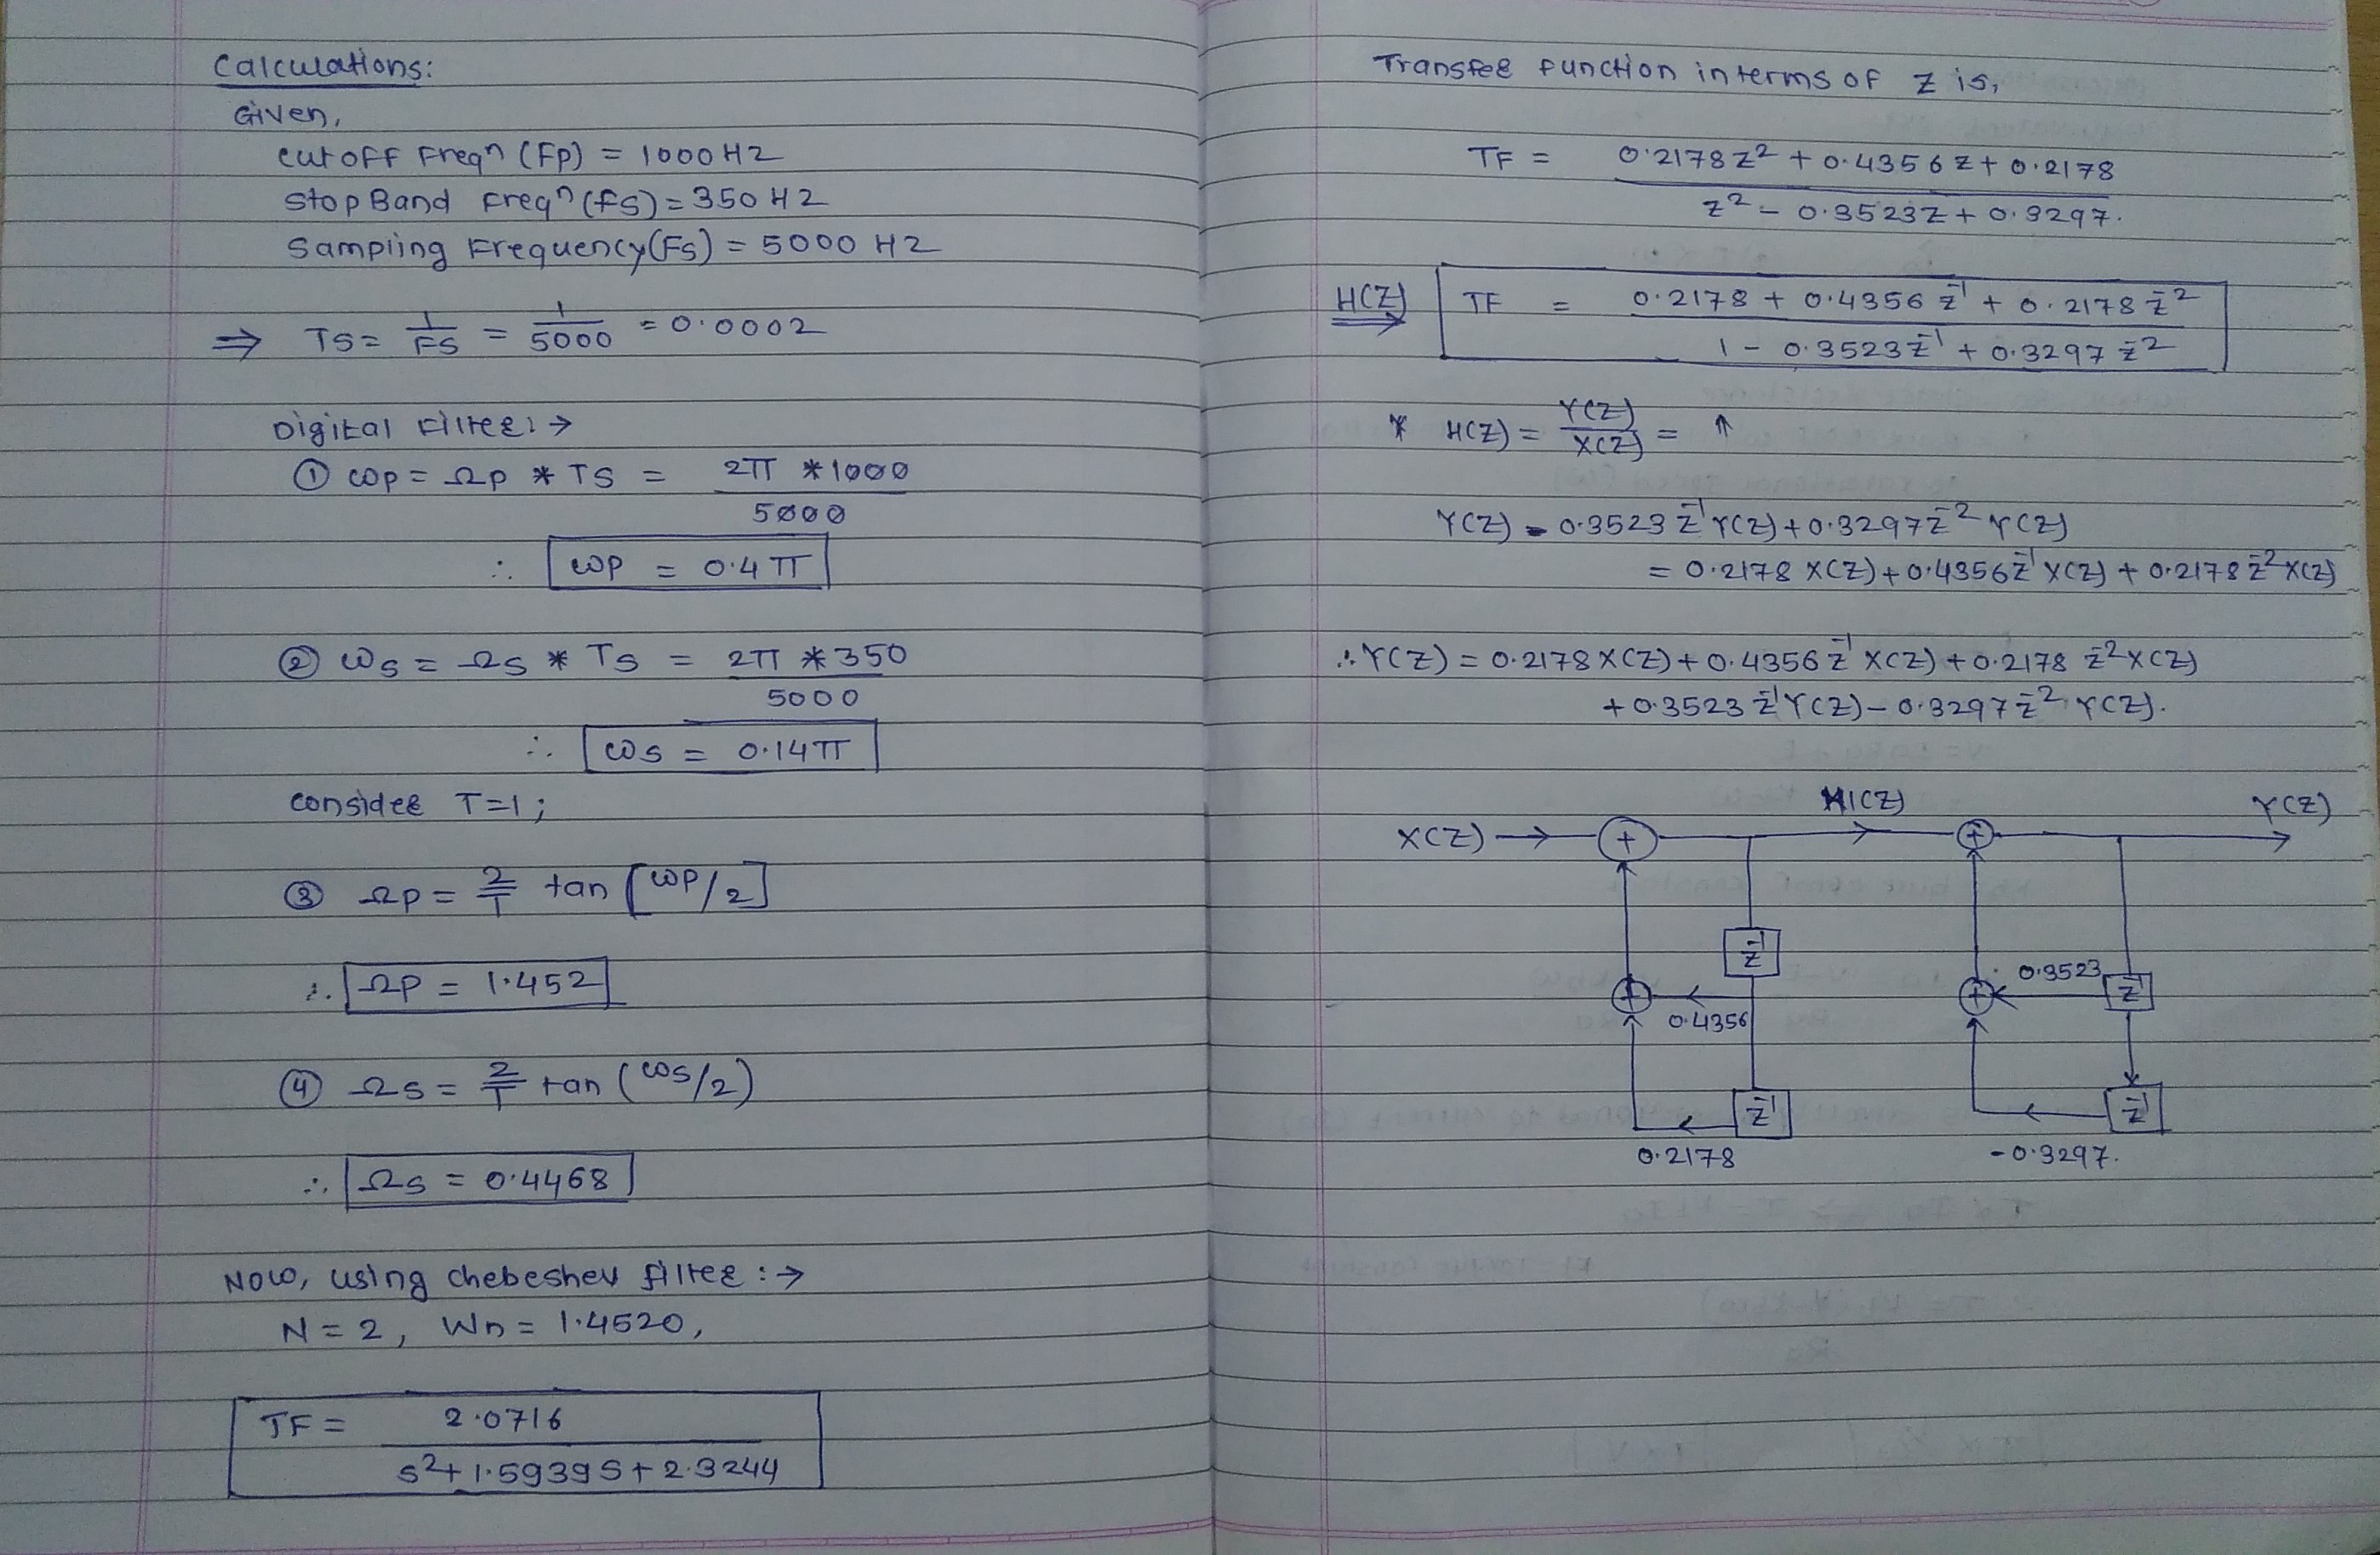 Calculations:
Given,
cutoff Freqⁿ (Fp) = 1000 Hz
Stop Band Freqⁿ (fs) = 350 Hz
Sampling Frequency(Fs) = 5000 Hz
⇒ TS = 1/FS = 1/5000 = 0.0002
Digital Filter: →
① ωp = Ωp * TS = 2π * 1000 / 5000
∴ ωp = 0.4π
② ωs = Ωs * Ts = 2π * 350 / 5000
∴ ωs = 0.14π
consider T=1;
③ Ωp = 2/T tan [ωp/2]
∴ Ωp = 1.452
④ Ωs = 2/T tan (ωs/2)
∴ Ωs = 0.4468
Now, using chebeshev filter : →
N = 2, Wn = 1.4520,
TF = 2.0716 / s² + 1.5939 s + 2.3244
Transfer function in terms of z is,
TF = 0.2178 z² + 0.4356 z + 0.2178 / z² - 0.3523z + 0.3297.
H(Z) TF = 0.2178 + 0.4356 z⁻¹ + 0.2178 z⁻² / 1 - 0.3523 z⁻¹ + 0.3297 z⁻²
* H(Z) = Y(Z)/X(Z) = ↑
Y(Z) - 0.3523 z⁻¹ Y(Z) + 0.3297 z⁻² Y(Z)
= 0.2178 X(Z) + 0.4356 z⁻¹ X(Z) + 0.2178 z⁻² X(Z)
∴ Y(Z) = 0.2178 X(Z) + 0.4356 z⁻¹ X(Z) + 0.2178 z⁻² X(Z)
+ 0.3523 z⁻¹ Y(Z) - 0.3297 z⁻² Y(Z).
H1(Z) Y(Z)
X(Z) → + +
z⁻¹
+ 0.4356 + 0.3523 z⁻¹
z⁻¹ z⁻¹
0.2178 -0.3297.